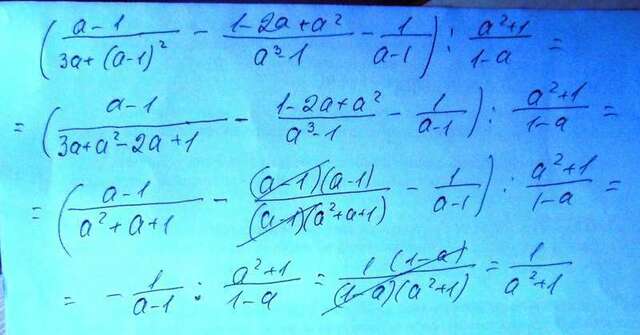 ( (a-1)/(3a+(a-1)²) - (1-2a+a²)/(a³-1) - 1/(a-1) ) : (a²+1)/(1-a) =
= ( (a-1)/(3a+a²-2a+1) - (1-2a+a²)/(a³-1) - 1/(a-1) ) : (a²+1)/(1-a) =
= ( (a-1)/(a²+a+1) - ((a-1)(a-1))/((a-1)(a²+a+1)) - 1/(a-1) ) : (a²+1)/(1-a) =
= - 1/(a-1) : (a²+1)/(1-a) = (1(1-a))/((1-a)(a²+1)) = 1/(a²+1)